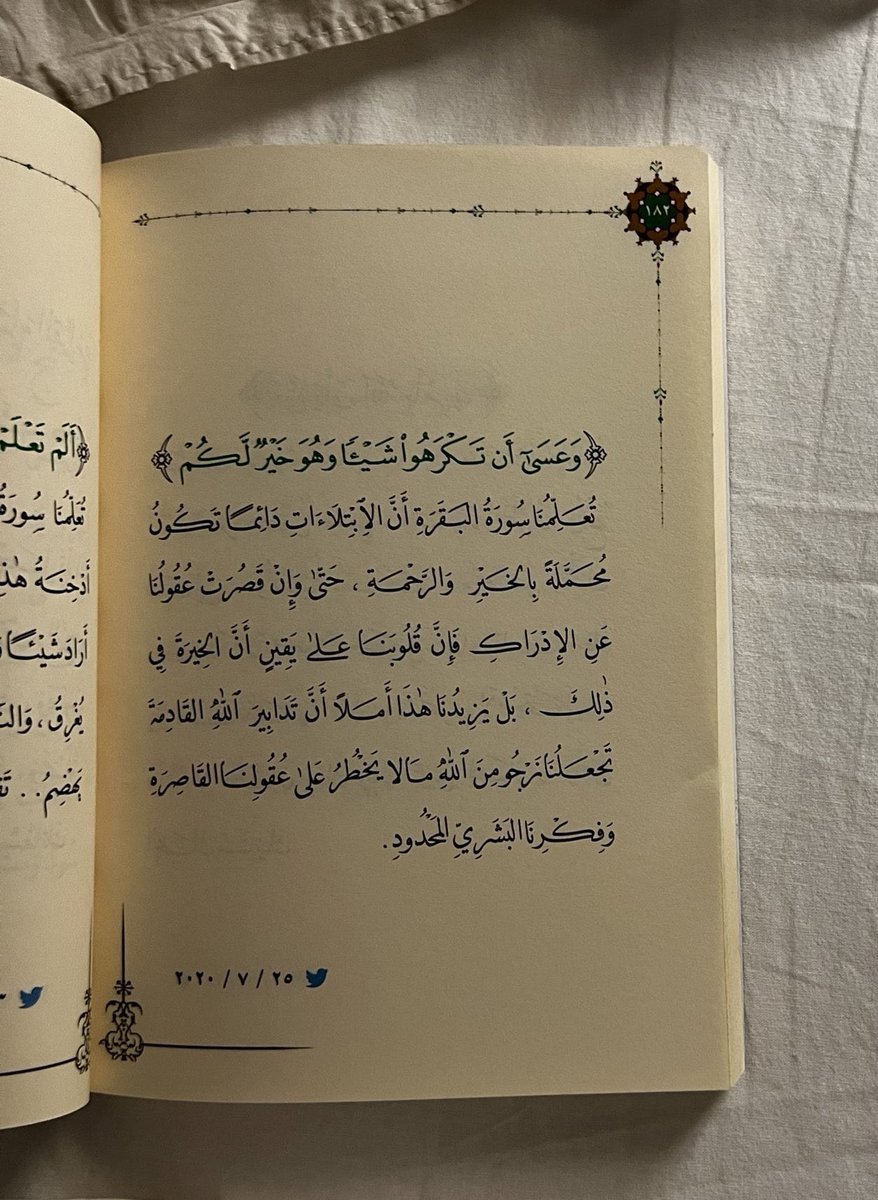 ١٨٢
﴿وَعَسَىٰٓ أَن تَكْرَهُوا۟ شَيْـًٔا وَهُوَ خَيْرٌ لَّكُمْ﴾
تُعَلِّمُنَا سُورَةُ البَقَرَةِ أَنَّ الِابْتِلَاءَاتِ دَائِمًا تَكُونُ
مُحَمَّلَةً بِالخَيْرِ وَالرَّحْمَةِ ، حَتَّىٰ وَإِنْ قَصُرَتْ عُقُولُنَا
عَنِ الإِدْرَاكِ فَإِنَّ قُلُوبَنَا عَلَىٰ يَقِينٍ أَنَّ الخِيرَةَ فِي
ذَٰلِكَ ، بَلْ يَزِيدُنَا هَٰذَا أَمَلًا أَنَّ تَدَابِيرَ ٱللَّهِ القَادِمَةَ
تَجْعَلُنَا نَرْجُو مِنَ ٱللَّهِ مَا لَا يَخْطُرُ عَلَىٰ عُقُولِنَا القَاصِرَةِ
وَفِكْرِنَا البَشَرِيِّ المَحْدُودِ.
٢٠٢٠ / ٧ / ٢٥
﴿أَلَمْ تَعْلَمْ
تُعَلِّمُنَا سُورَةُ
أَرَادَ شَيْئًا
يُغْرِقُ ،
يَهْضِمُ . .